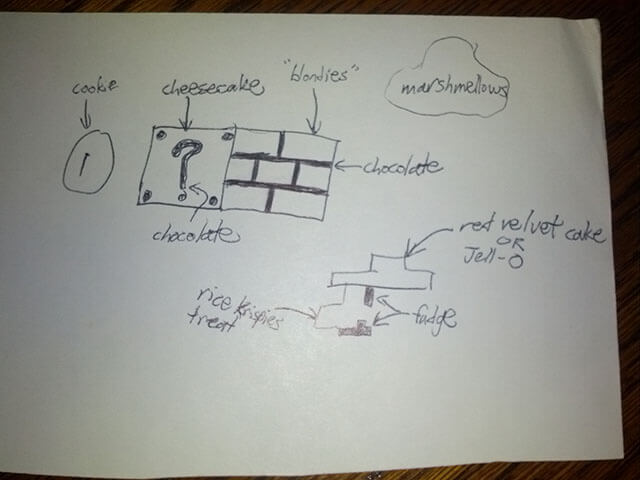 cookie
cheesecake
"blondies"
marshmellows
?
chocolate
chocolate
red velvet cake
OR
Jell-O
rice krispies
treat
fudge